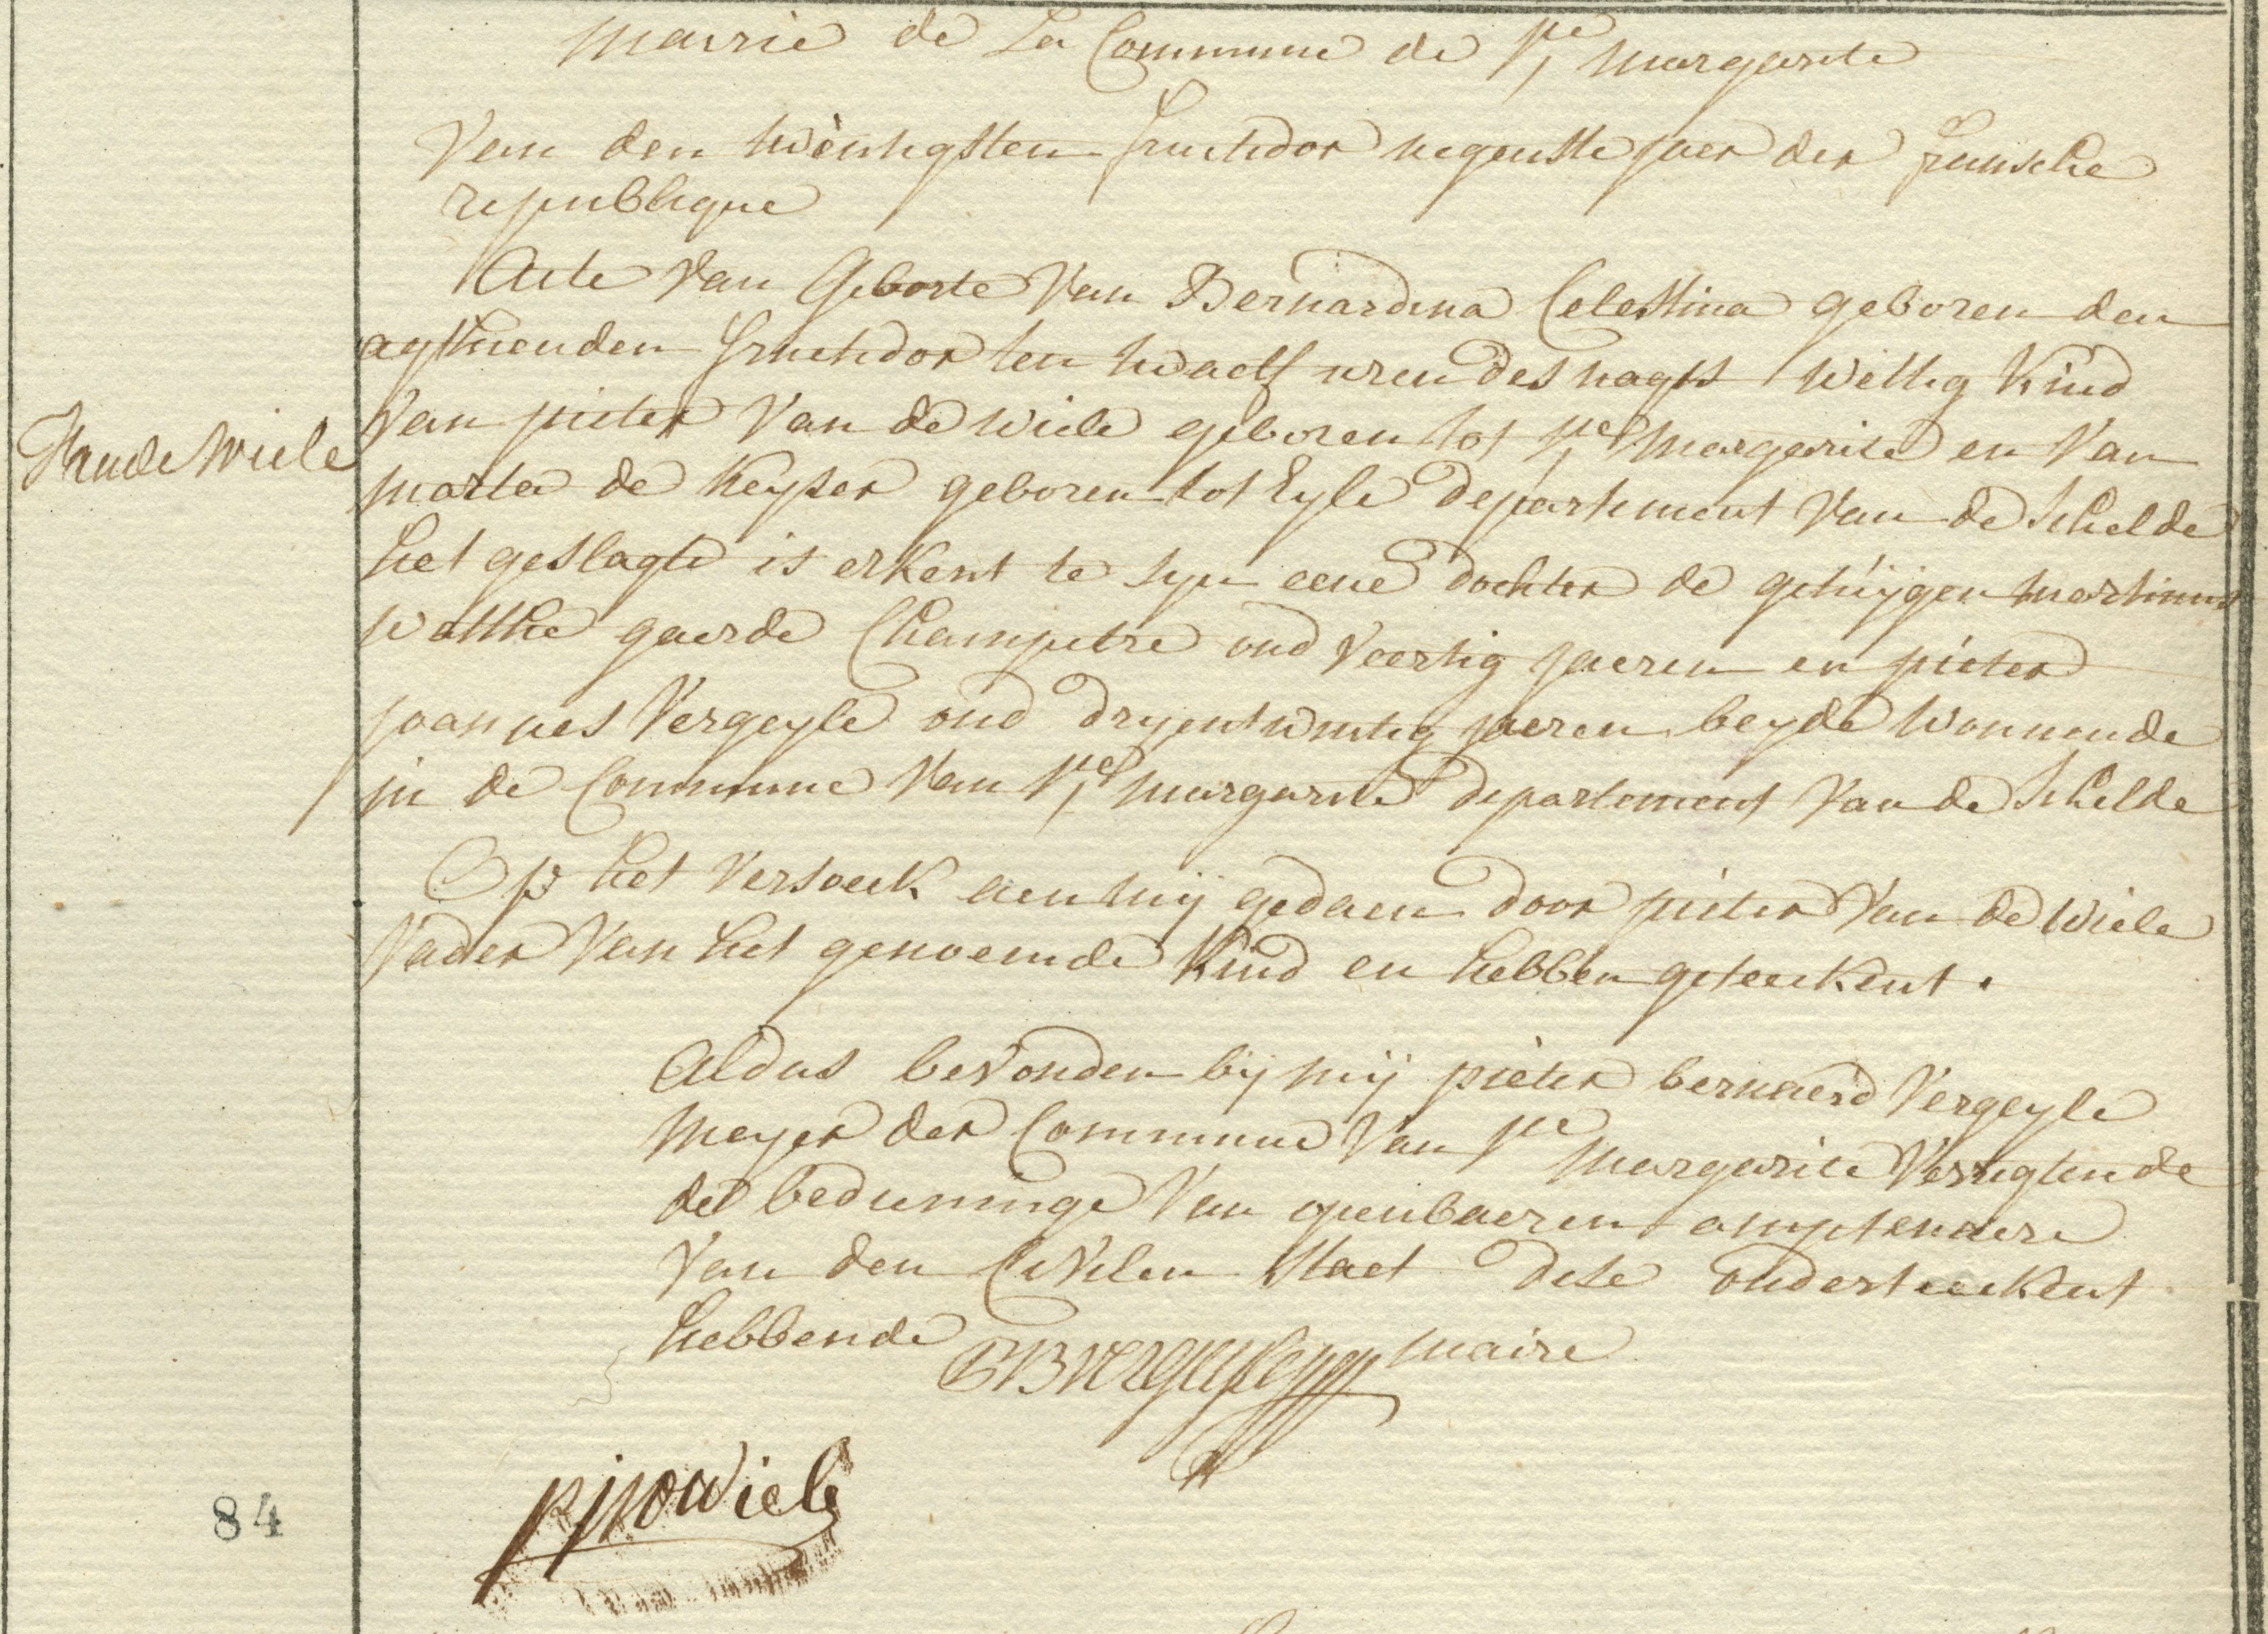 Mairie de La Commune de Ste Margarite
Van den twèntigsten fructidor negenste jaer der fransche
republique
Acte Van Geborte Van Bernardina Celestina geboren den
agthienden fructidor ten twaelf uren des nagts Wettig Kind
Van pieter Van de Wiele geboren tot Ste Margarite en Van
Van de Wiele
marta de Keyser geboren tot Eyle département Van de Schelde
het geslagte is erkent te syn eene dochter de getuÿgen martinus
gaerde Champetre oud Veertig jaeren en pieter
joannes Vergeyle oud dryentwintig jaeren beyde Wonnende
in de Commune Van Ste margarite departement Van de Schelde
Op het Versoeck aen mij gedaen door pieter Van de Wiele
Vader Van het genoemde Kind en hebben geteeckent.
Aldus bevonden bij mij pieter bernaerd Vergeyle
Meyer der Commune Van Ste Margarite Verrigtende
de bedieninge Van openbaeren amptenaere
Van den Civilen Staet dese onderteeckent
hebbende PB Vergeyle maire
Wiele
84